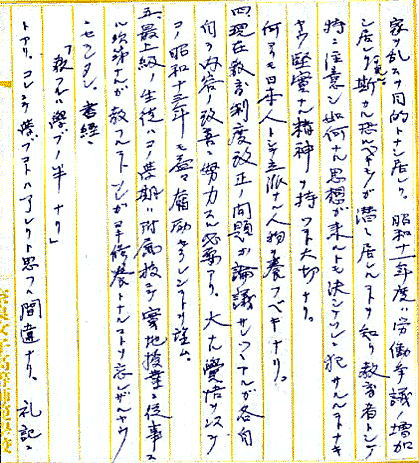 家ヲ乱スヲ目的トナシ居レリ。昭和十一年度ハ労働争議ノ増加
シ居レリ斯カル恐ルベキモノガ潜シ居ルコトヲ知リ教育者トシテ
特ニ注意シ如何ナル思想ガ来ルトモ決シテソレニ犯サルルコトナキ
ヤウ堅実ナル精神ヲ持ツコト大切ナリ。
何レモ日本人トシテ立派ナル人物ヲ養フベキナリ。
四、現在教育制度改正ノ問題ガ論議サレツツアルガ各自
自ラ内容ノ改善ニ努力スル必要アリ。大ナル覚悟ヲ以テ
コノ昭和十三年モ益々奮励セラレンコトヲ望ム。
五、最上級ノ生徒ハコノ学期ハ附属校ニテ実地授業ニ従事ス
ル次第ナルガ教フルトイフコトガ修養トナルコトヲ忘レザルヤウ
ニセラレタシ。書経ニ
「教フルハ学ブノ半ナリ」
トアリ。コレヲ学ブコトハアレクト思フハ間違ナリ。礼記ニ
奈良女子高等師範学校